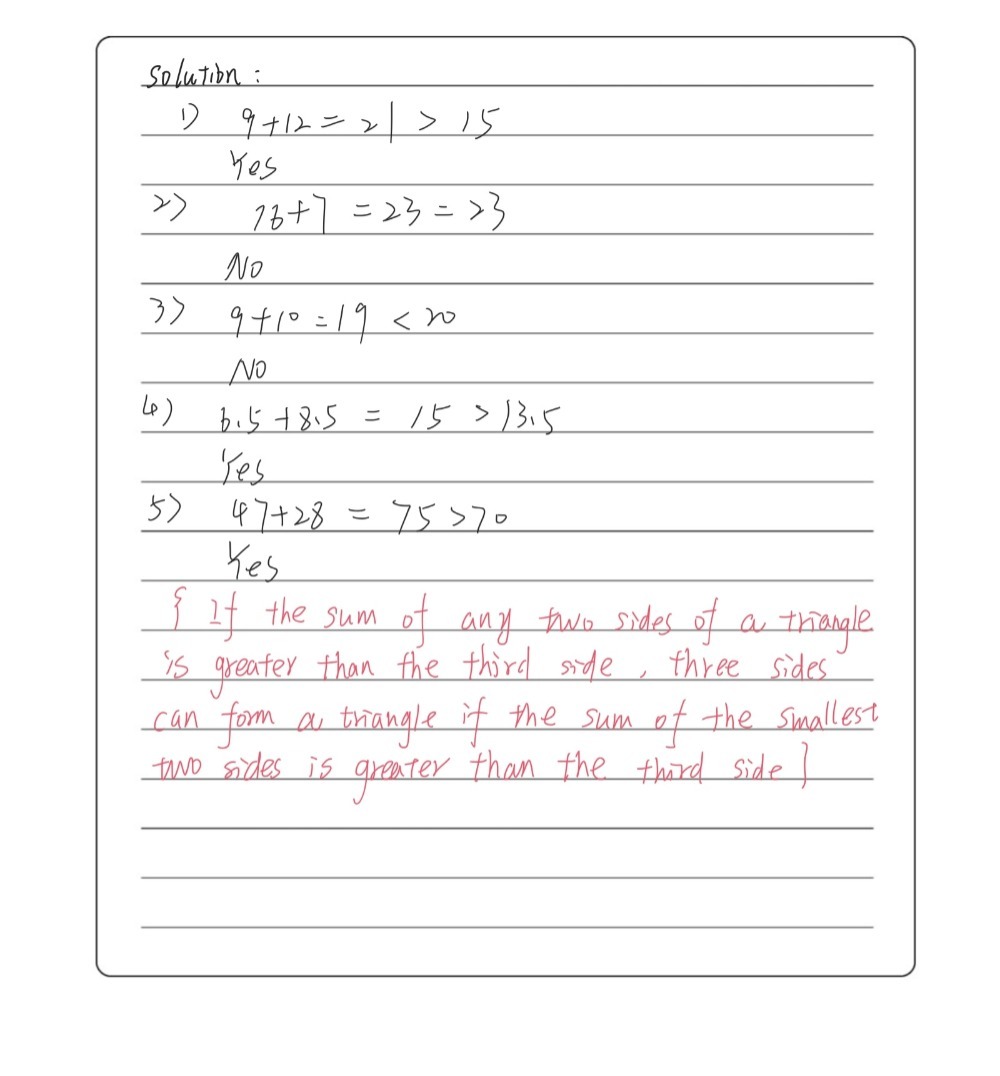 Solution:
1) 9+12=21 > 15
Yes
2) 16+7 = 23 = 23
No
3) 9+10=19 < 20
No
4) 6.5+8.5 = 15 > 13.5
Yes
5) 47+28 = 75>70
Yes
{ If the sum of any two sides of a triangle
is greater than the third side, three sides
can form a triangle if the sum of the smallest
two sides is greater than the third side }